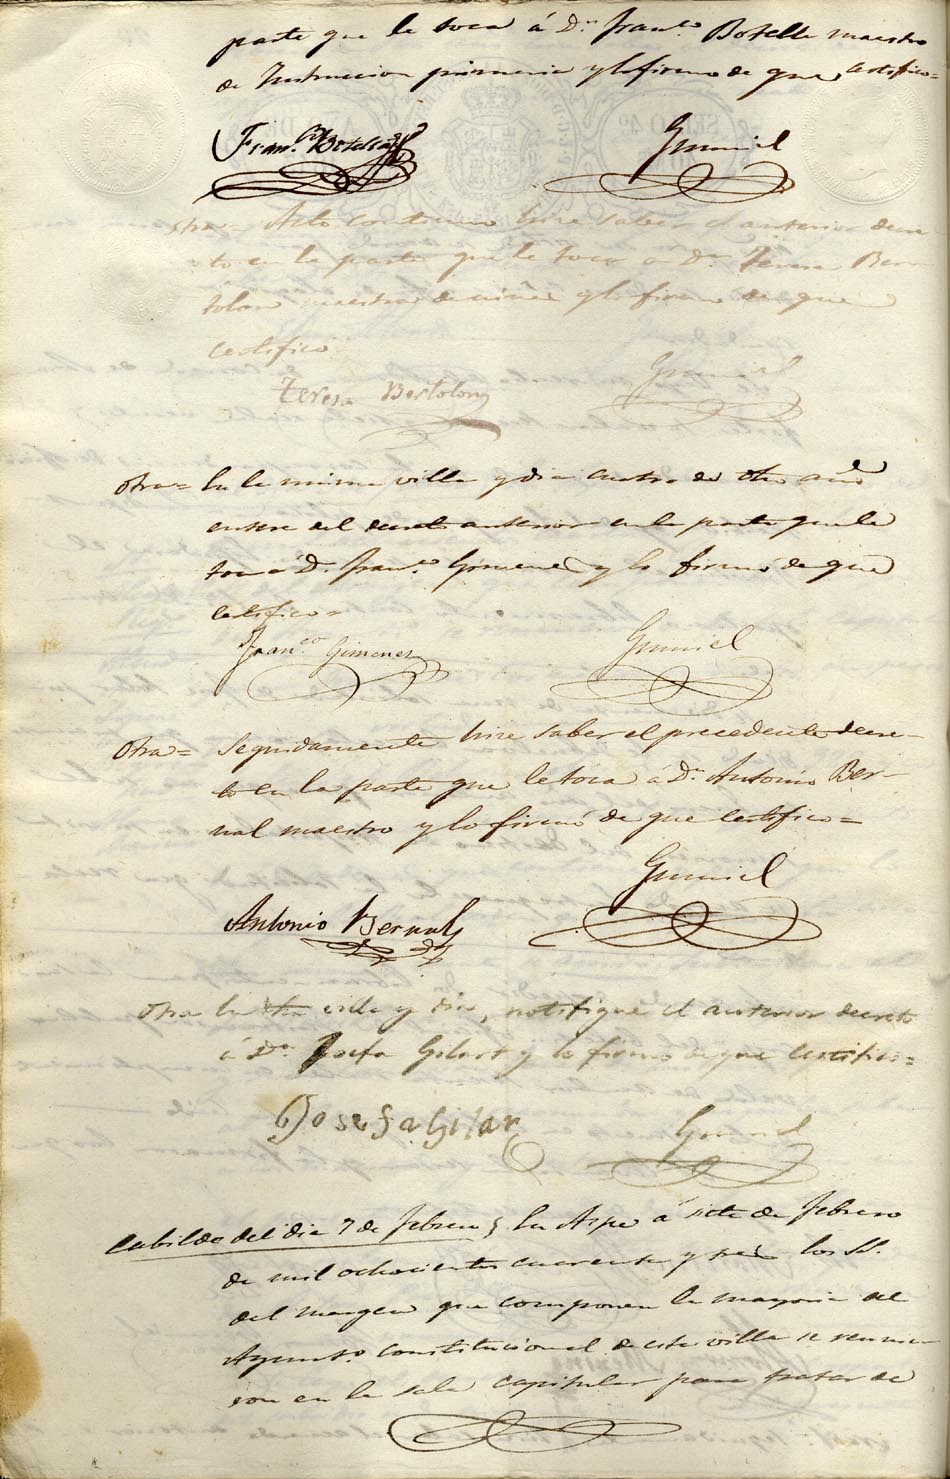 parte que le toca á Dn. Franco. Botella maestro
de Instruccion primaria y lo firmo de que certifico=
Franco. Botella
Gumiel
otra= Acto continuo hice saber el anterior decre-
to en la parte que le toca a Da. Teresa Ber-
tolon maestra de niñas y lo firmo de que
certifico
Teresa Bertolon
Gumiel
otra= En la misma villa y dia cuatro de dho año
entere del decreto anterior en la parte que le
toca á D. Franco. Gimenez y lo firmó de que
certifico=
Franco. Gimenez
Gumiel
Otra= Seguidamente hice saber el precedente decre-
to en la parte que le toca á Dn. Antonio Ber-
nal maestro y lo firmó de que certifico=
Gumiel
Antonio Bernal
Otra En dha villa y dia, notifique el anterior decreto
á Da. Josefa Gilart y lo firmo de que certifico=
Josefa Gilar
Gumiel
Cabildo del dia 7 de febrero En Aspe á siete de febrero
de mil ochocientos cuarenta y tres los SS.
del margen que componen la mayoria del
Ayunto. constitucional de esta villa se reunie-
ron en la sala capitular para tratar de